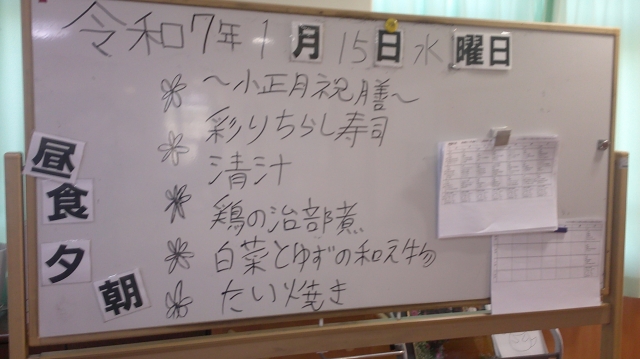 令和7年1月15日水曜日
～小正月祝膳～
彩りちらし寿司
清汁
鶏の治部煮
白菜とゆずの和え物
たい焼き
昼
食
夕
朝